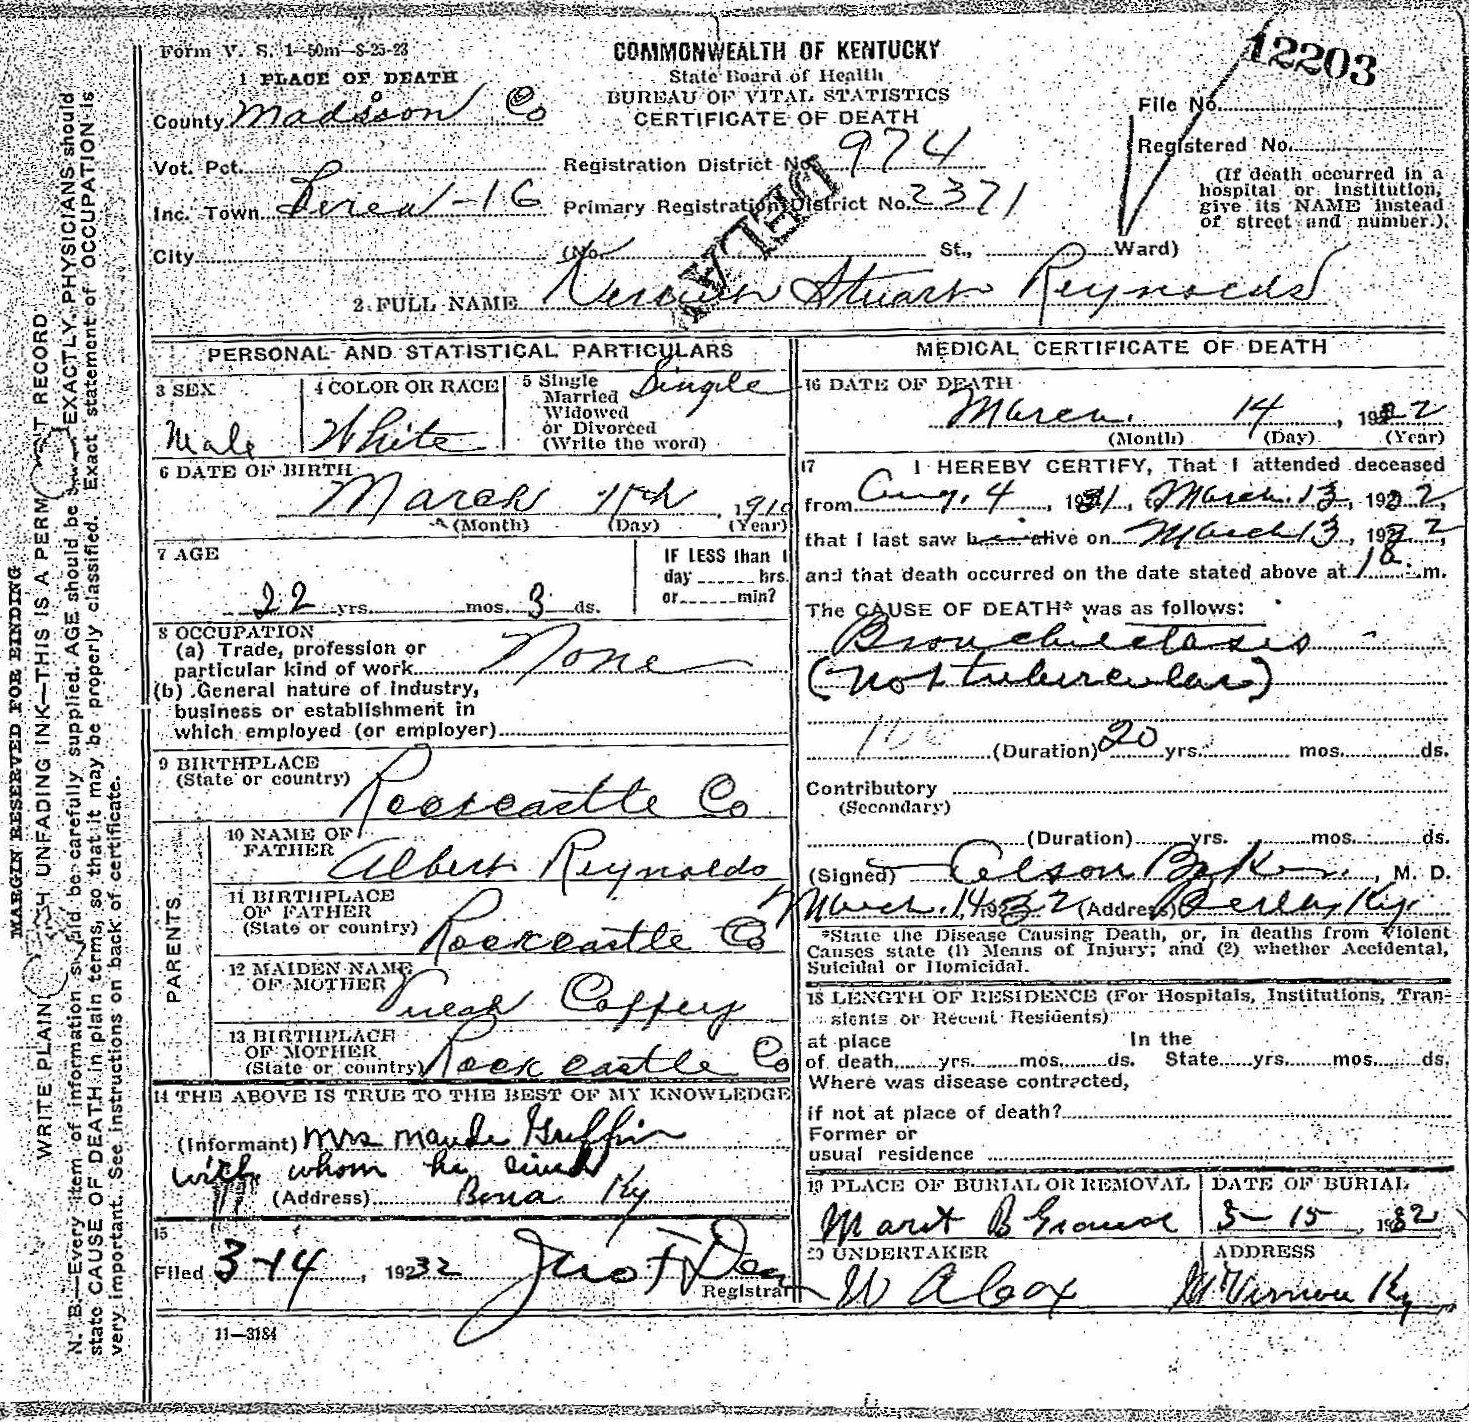 Form V. S. 1—50m—8-25-23
COMMONWEALTH OF KENTUCKY
State Board of Health
BUREAU OF VITAL STATISTICS
CERTIFICATE OF DEATH
12203
File No.
Registered No.
(If death occurred in a
hospital or institution,
give its NAME instead
of street and number.)
1 PLACE OF DEATH
County Madison Co
Vot. Pct. Registration District No. 974
Inc. Town Berea - 16 Primary Registration District No. 2371
DELAY
City (No. St., Ward)
2. FULL NAME Stuart Reynolds
PERSONAL AND STATISTICAL PARTICULARS
3 SEX
Male
4 COLOR OR RACE
White
5 Single
Married
Widowed
or Divorced
(Write the word)
Single
6 DATE OF BIRTH
March 11th, 1910
(Month) (Day) (Year)
7 AGE
22 yrs. mos. 3 ds.
IF LESS than 1
day hrs.
or min?
8 OCCUPATION
(a) Trade, profession or
particular kind of work None
(b) General nature of industry,
business or establishment in
which employed (or employer)
9 BIRTHPLACE
(State or country)
Rockcastle Co
PARENTS
10 NAME OF
FATHER Albert Reynolds
11 BIRTHPLACE
OF FATHER
(State or country) Rockcastle Co
12 MAIDEN NAME
OF MOTHER Coffey
13 BIRTHPLACE
OF MOTHER
(State or country) Rockcastle Co
14 THE ABOVE IS TRUE TO THE BEST OF MY KNOWLEDGE
(Informant) Mrs Maude Griffin
with whom he lived
(Address) Berea Ky
15
Filed 3-14, 1932 Jno F Dean
Registrar
11—3184
MEDICAL CERTIFICATE OF DEATH
16 DATE OF DEATH
March 14, 1932
(Month) (Day) (Year)
17 I HEREBY CERTIFY, That I attended deceased
from Aug. 4, 1931, to March 13, 1932,
that I last saw him alive on March 13, 1932,
and that death occurred on the date stated above at m.
The CAUSE OF DEATH* was as follows:
Bronchiectasis
(not tubercular)
106 (Duration) 20 yrs. mos. ds.
Contributory
(Secondary)
(Duration) yrs. mos. ds.
(Signed) Alson Baker, M. D.
March 14, 1932 (Address) Berea, Ky.
*State the Disease Causing Death, or, in deaths from Violent
Causes state (1) Means of Injury; and (2) whether Accidental,
Suicidal or Homicidal.
18 LENGTH OF RESIDENCE (For Hospitals, Institutions, Tran-
sients or Recent Residents)
at place In the
of death yrs. mos. ds. State yrs. mos. ds.
Where was disease contracted,
if not at place of death?
Former or
usual residence
19 PLACE OF BURIAL OR REMOVAL
DATE OF BURIAL
3-15, 1932
20 UNDERTAKER
W A Cox
ADDRESS
Mt Vernon Ky
MARGIN RESERVED FOR BINDING
WRITE PLAINLY WITH UNFADING INK—THIS IS A PERMANENT RECORD
N. B.—Every item of information should be carefully supplied. AGE should be EXACTLY. PHYSICIANS should
state CAUSE OF DEATH in plain terms, so that it may be properly classified. Exact statement of OCCUPATION is
very important. See instructions on back of certificate.